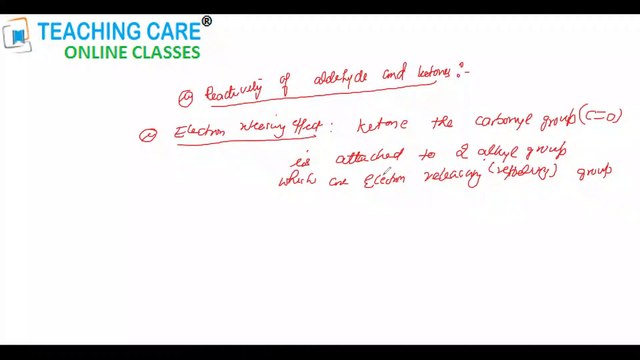 TEACHING CARE®
ONLINE CLASSES
Reactivity of aldehyde and ketones :-
Electron releasing effect : Ketone the carbonyl group (C=O)
is attached to 2 alkyl group
which are Electron releasing (repelling) group